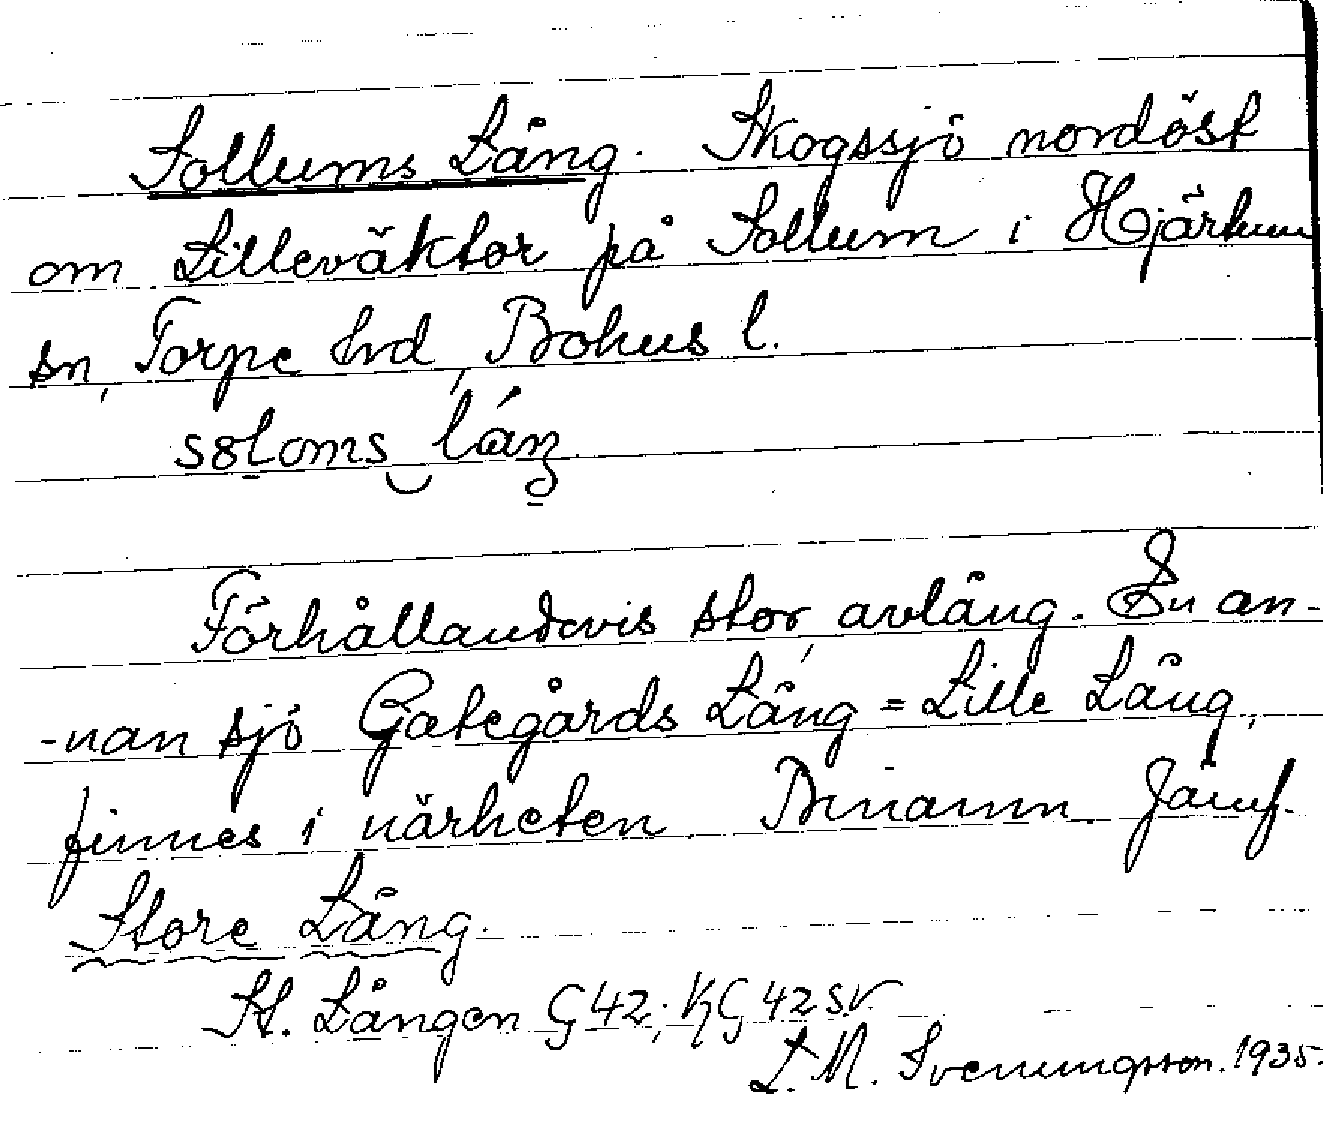 Sollums Lång. Skogssjö nordöst
om Lilleväktor på Sollum i Hjärtum
sn, Torpe hrd, Bohus l.
Förhållandevis stor, avlång. En an-
-nan sjö Gategårds Lång = Lille Lång,
finnes i närheten. Binamn. Jämf.
Store Lång.
St. Lången G 42; KG 42 s.v
L. M. Svenungsson. 1935.